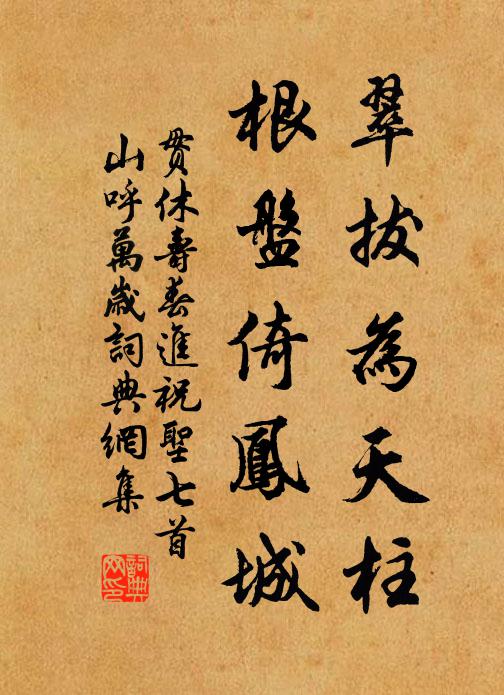 翠拔為天柱
根盤倚鳳城
貫休壽春進祝聖七首
山呼萬歲詞典網集
詞典
网印